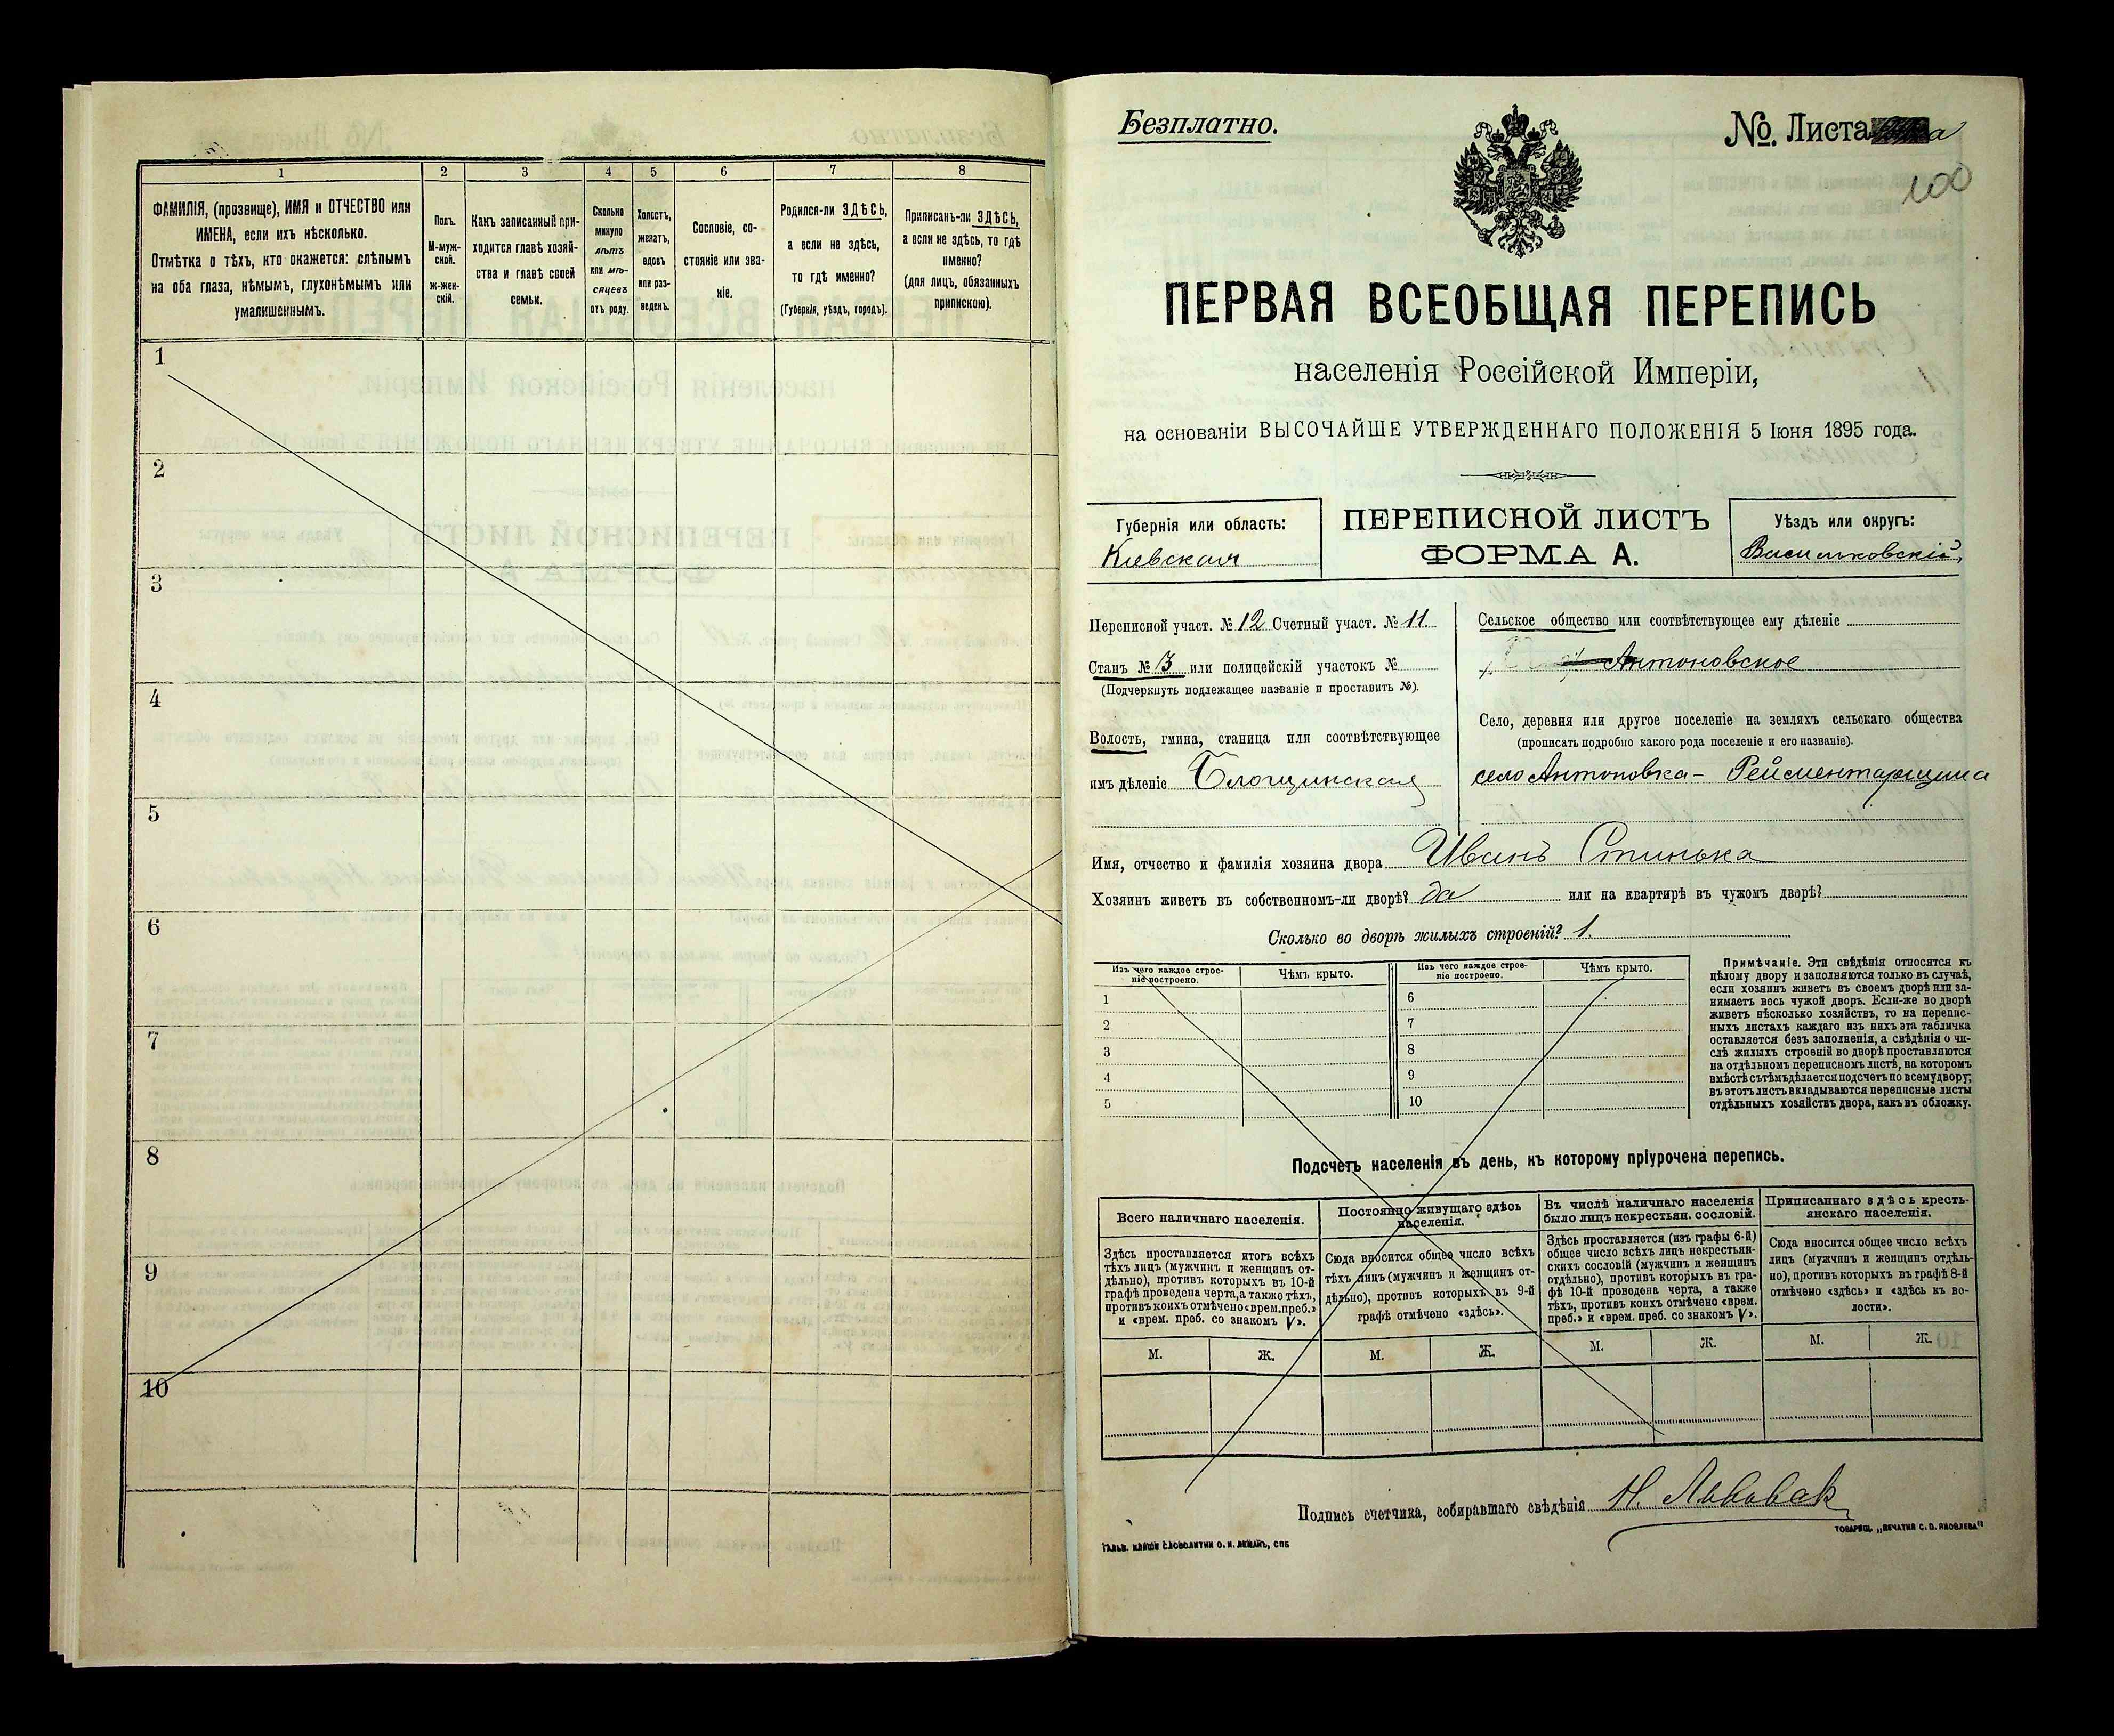 1
2
3
4
5
6
7
8
ФАМИЛІЯ, (прозвище), ИМЯ и ОТЧЕСТВО или
ИМЕНА, если ихъ нѣсколько.
Отмѣтка о тѣхъ, кто окажется: слѣпымъ
на оба глаза, нѣмымъ, глухонѣмымъ или
умалишеннымъ.
Полъ.
М-муж-
ской.
ж-жен-
скій.
Какъ записанный при-
ходится главѣ хозяй-
ства и главѣ своей
семьи.
Сколько
минуло
лѣтъ
или мѣ-
сяцевъ
отъ роду.
Холостъ,
женатъ,
вдовъ
или раз-
веденъ.
Сословіе, со-
стояніе или зва-
ніе.
Родился-ли ЗДѢСЬ,
а если не здѣсь,
то гдѣ именно?
(Губернія, уѣздъ, городъ).
Приписанъ-ли ЗДѢСЬ,
а если не здѣсь, то гдѣ
именно?
(для лицъ, обязанныхъ
припискою).
1
2
3
4
5
6
7
8
9
10
Безплатно.
№. Листа
100
ПЕРВАЯ ВСЕОБЩАЯ ПЕРЕПИСЬ
населенія Россійской Имперіи,
на основаніи ВЫСОЧАЙШЕ УТВЕРЖДЕННАГО ПОЛОЖЕНІЯ 5 Іюня 1895 года.
Губернія или область:
Кіевская
ПЕРЕПИСНОЙ ЛИСТЪ
ФОРМА А.
Уѣздъ или округъ:
Васильковскій
Переписной участ. № 12 Счетный участ. № 11
Станъ № 3 или полицейскій участокъ №
(Подчеркнуть подлежащее названіе и проставить №).
Волость, гмина, станица или соотвѣтствующее
имъ дѣленіе Блощинская
Сельское общество или соотвѣтствующее ему дѣленіе
Антоновское
Село, деревня или другое поселеніе на земляхъ сельскаго общества
(прописать подробно какого рода поселеніе и его названіе).
село Антоновка - Рейментарщина
Имя, отчество и фамилія хозяина двора Иванъ Спинька
Хозяинъ живетъ въ собственномъ-ли дворѣ? да или на квартирѣ въ чужом дворѣ?
Сколько во дворѣ жилыхъ строеній? 1.
Изъ чего каждое строе-
ніе построено.
Чѣмъ крыто.
Изъ чего каждое строе-
ніе построено.
Чѣмъ крыто.
1
2
3
4
5
6
7
8
9
10
Примѣчаніе. Эти свѣдѣнія относятся къ
цѣлому двору и заполняются только въ случаѣ,
если хозяинъ живетъ въ своемъ дворѣ или за-
нимаетъ весь чужой дворъ. Если-же во дворѣ
живетъ нѣсколько хозяйствъ, то на перепис-
ныхъ листахъ каждаго изъ нихъ эта табличка
оставляется безъ заполненія, а свѣдѣнія о чи-
слѣ жилыхъ строеній во дворѣ проставляются
на отдѣльномъ переписномъ листѣ, на которомъ
вмѣстѣ съ тѣмъ дѣлается подсчетъ по всему двору;
въ этотъ листъ вкладываются переписные листы
отдѣльныхъ хозяйствъ двора, какъ въ обложку.
Подсчетъ населенія въ день, къ которому пріурочена перепись.
Всего наличнаго населенія.
Постоянно живущаго здѣсь
населенія.
Въ числѣ наличнаго населенія
было лицъ некрестьян. сословій.
Приписаннаго здѣсь кресть-
янскаго населенія.
Здѣсь проставляется итогъ всѣхъ
тѣхъ лицъ (мужчинъ и женщинъ от-
дѣльно), противъ которыхъ въ 10-й
графѣ проведена черта, а также тѣхъ,
противъ коихъ отмѣчено «врем. преб.»
и «врем. преб. со знакомъ V».
Сюда вносится общее число всѣхъ
тѣхъ лицъ (мужчинъ и женщинъ от-
дѣльно), противъ которыхъ въ 9-й
графѣ отмѣчено «здѣсь».
Здѣсь проставляется (изъ графы 6-й)
общее число всѣхъ лицъ некрестьян-
скихъ сословій (мужчинъ и женщинъ
отдѣльно), противъ которыхъ въ гра-
фѣ 10-й проведена черта, а также
тѣхъ, противъ коихъ отмѣчено «врем.
преб.» и «врем. преб. со знакомъ V».
Сюда вносится общее число всѣхъ
лицъ (мужчинъ и женщинъ отдѣль-
но), противъ которыхъ въ графѣ 8-й
отмѣчено «здѣсь» и «здѣсь къ во-
лости».
М.
Ж.
М.
Ж.
М.
Ж.
М.
Ж.
Подпись счетчика, собиравшаго свѣдѣнія Н.
ТОВАРИЩ. „ПЕЧАТНЯ С. П. ЯКОВЛЕВА"
СЛОВОЛИТНИ О. И. ЛЕМАНЪ, СПБ